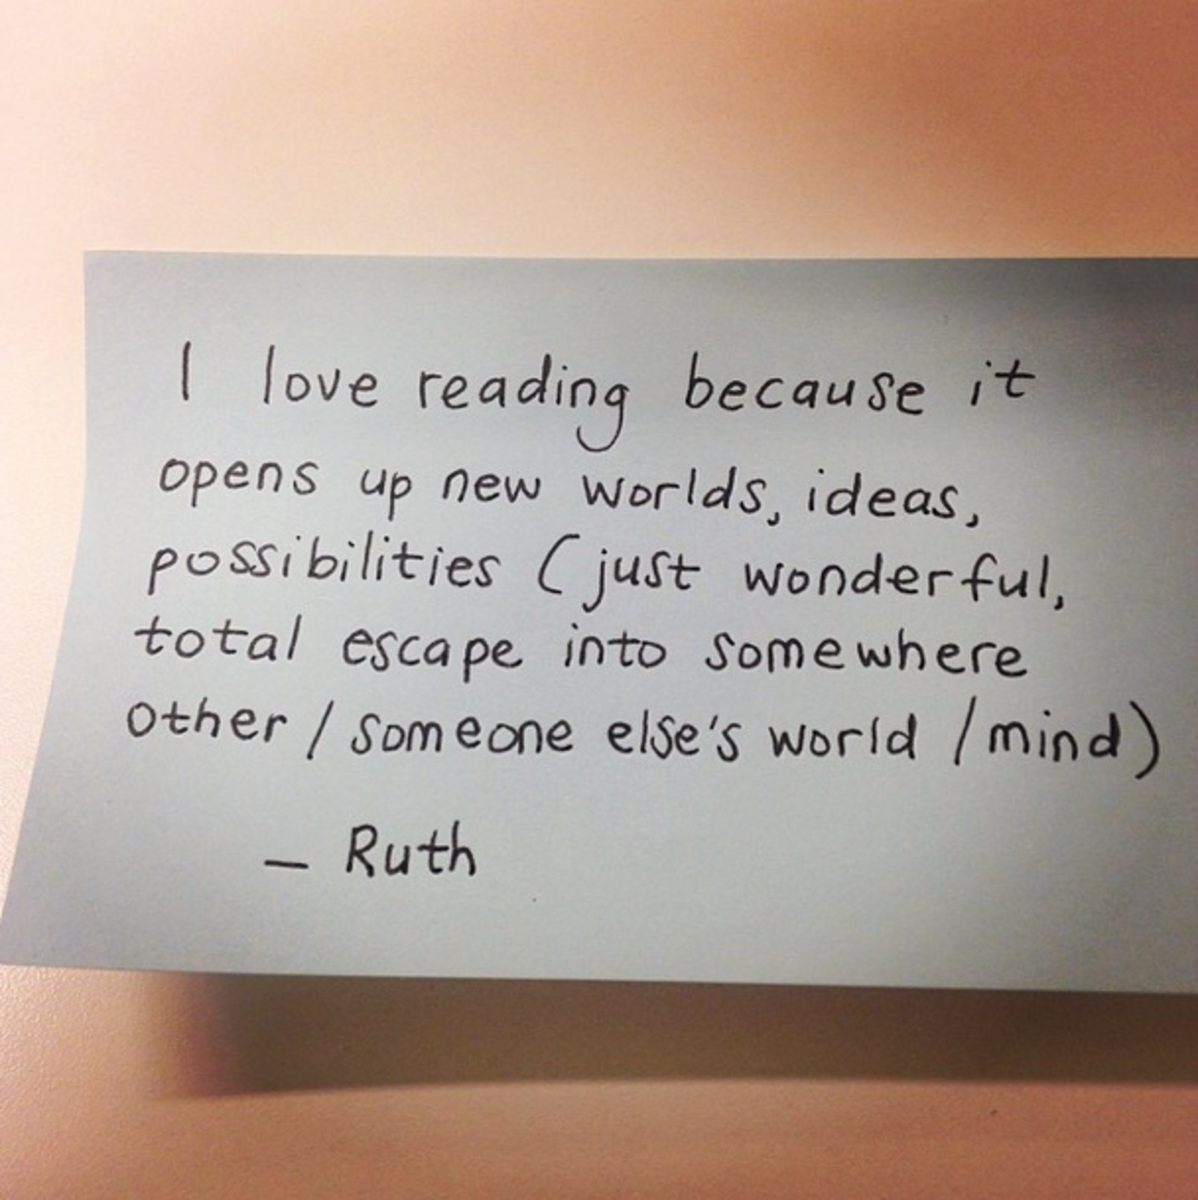 I love reading because it
opens up new worlds, ideas,
possibilities (just wonderful,
total escape into somewhere
other / someone else's world / mind)
– Ruth